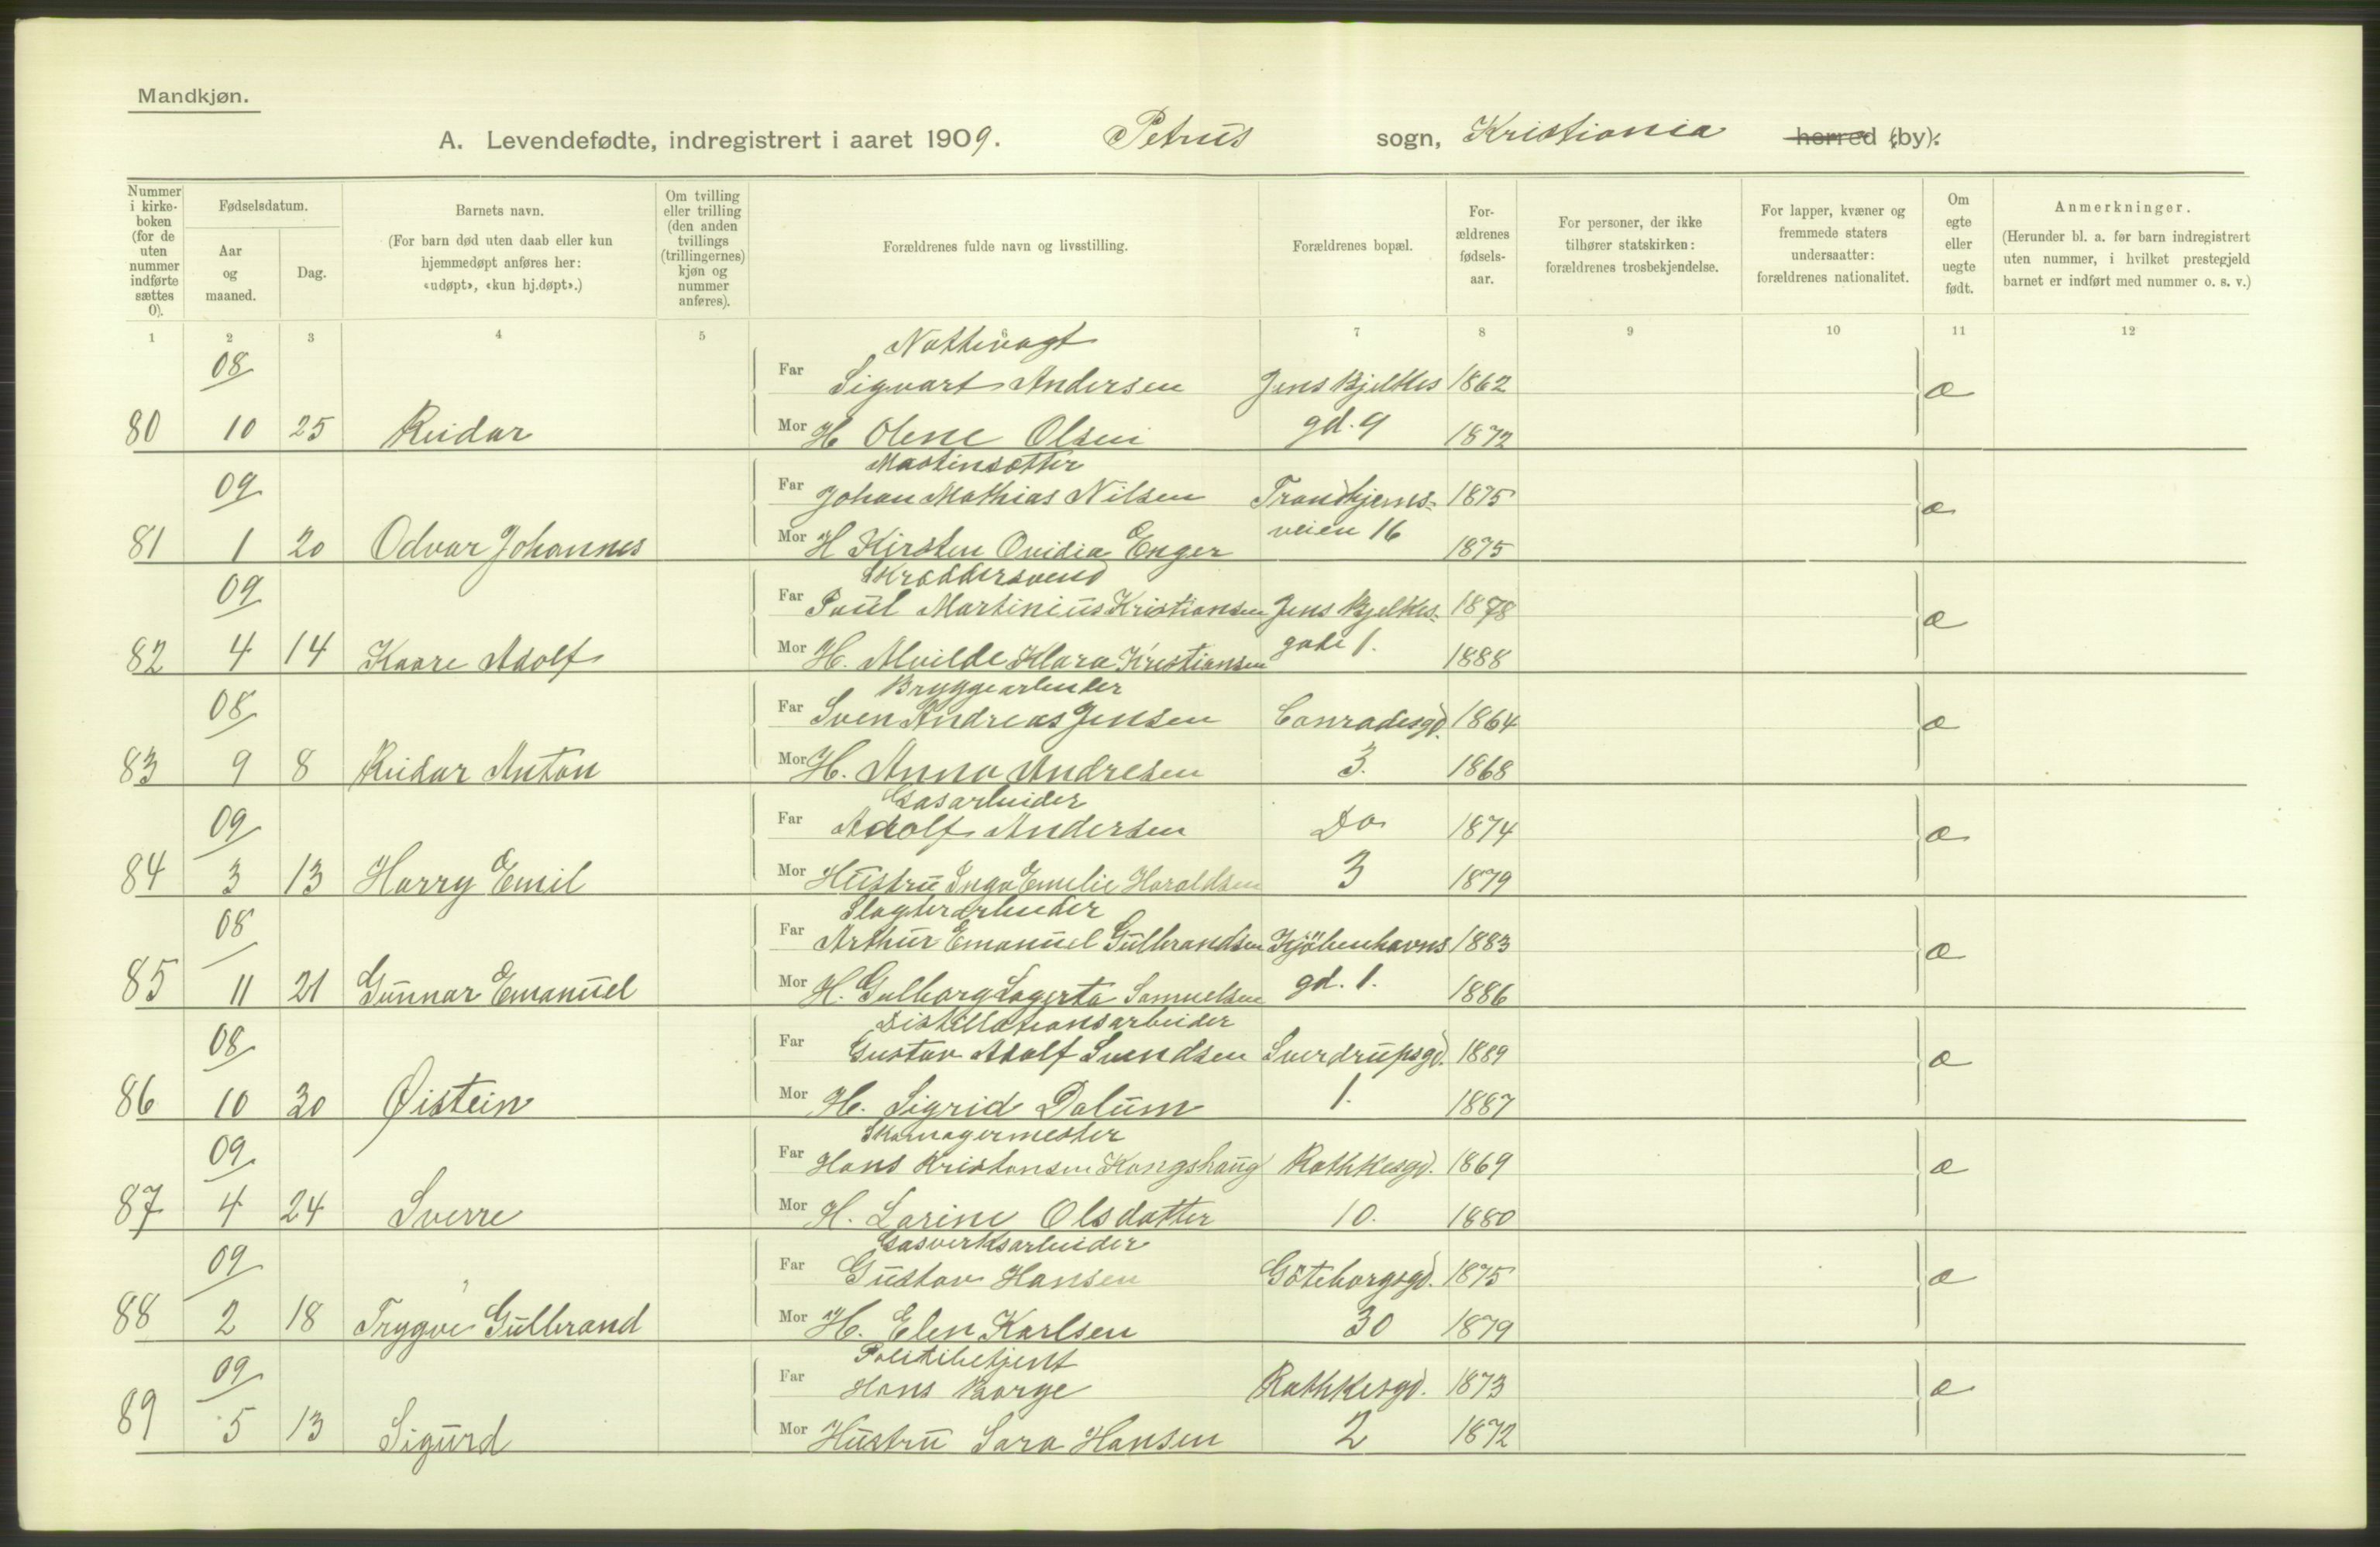 Mandkjøn.
A. Levendefødte, indregistrert i aaret 1909. Petrus sogn, Kristiania herred (by).
Nummer i kirke-boken (for de uten nummer indførte sættes 0).
Fødselsdatum.
Aar og maaned.
Dag.
Barnets navn.
(For barn død uten daab eller kun hjemmedøpt anføres her: «udøpt», «kun hj.døpt».)
Om tvilling eller trilling (den anden tvillings (trillingernes) kjøn og nummer anføres).
Forældrenes fulde navn og livsstilling.
Forældrenes bopæl.
For-ældrenes fødsels-aar.
For personer, der ikke tilhører statskirken: forældrenes trosbekjendelse.
For lapper, kvæner og fremmede staters undersaatter: forældrenes nationalitet.
Om egte eller uegte født.
Anmerkninger.
(Herunder bl. a. for barn indregistrert uten nummer, i hvilket prestegjeld barnet er indført med nummer o. s. v.)
1 2 3 4 5 7 8 9 10 11 12
Nattevagt
08 Far Sigvart Andersen Jens Bjelkes 1862 æ
80 10 25 Reidar Mor H Olene Olsen gd. 9 1872
Maskinsætter
09 Far Johan Mathias Nilsen Trondhjems- 1875 æ
81 1 20 Odvar Johannes Mor H Kirsten Ovidia Enger veien 16 1875
Skræddersvend
09 Far Paul Martinius Kristiansen Jens Bjelkes- 1878 æ
82 4 14 Kaare Adolf Mor H. Alvilde Klara Kristiansen gade 1. 1888
Bryggearbeider
08 Far Sven Andreas Jensen Conradesgd. 1864 æ
83 9 8 Reidar Anton Mor H. Anna Andresen 3. 1868
Gasarbeider
09 Far Adolf Andersen Do 1874 æ
84 3 13 Harry Emil Mor Hustru Inga Emelie Haraldsen 3 1879
Slagterarbeider
08 Far Arthur Emanuel Gulbrandsen Kjöbenhavns 1883 æ
85 11 21 Gunnar Emanuel Mor H. Gulborg Lagerta Samuelsen gd. 1. 1886
Distillationsarbeider
08 Far Gustav Adolf Svendsen Sverdrupsgd. 1889 æ
86 10 30 Øistein Mor H. Sigrid Dalum 1. 1887
Skomagermester
09 Far Hans Kristansen Kongshaug Rathkesgd. 1869 æ
87 4 24 Sverre Mor H. Larine Olsdatter 10. 1880
Gasverksarbeider
09 Far Gustav Hansen Göteborgsgd. 1875 æ
88 2 18 Trygve Gulbrand Mor H. Elen Karlsen 30 1879
Politibetjent
09 Far Hans Borge Rathkesgd. 1873 æ
89 5 13 Sigurd Mor Hustru Sara Hansen 2 1872